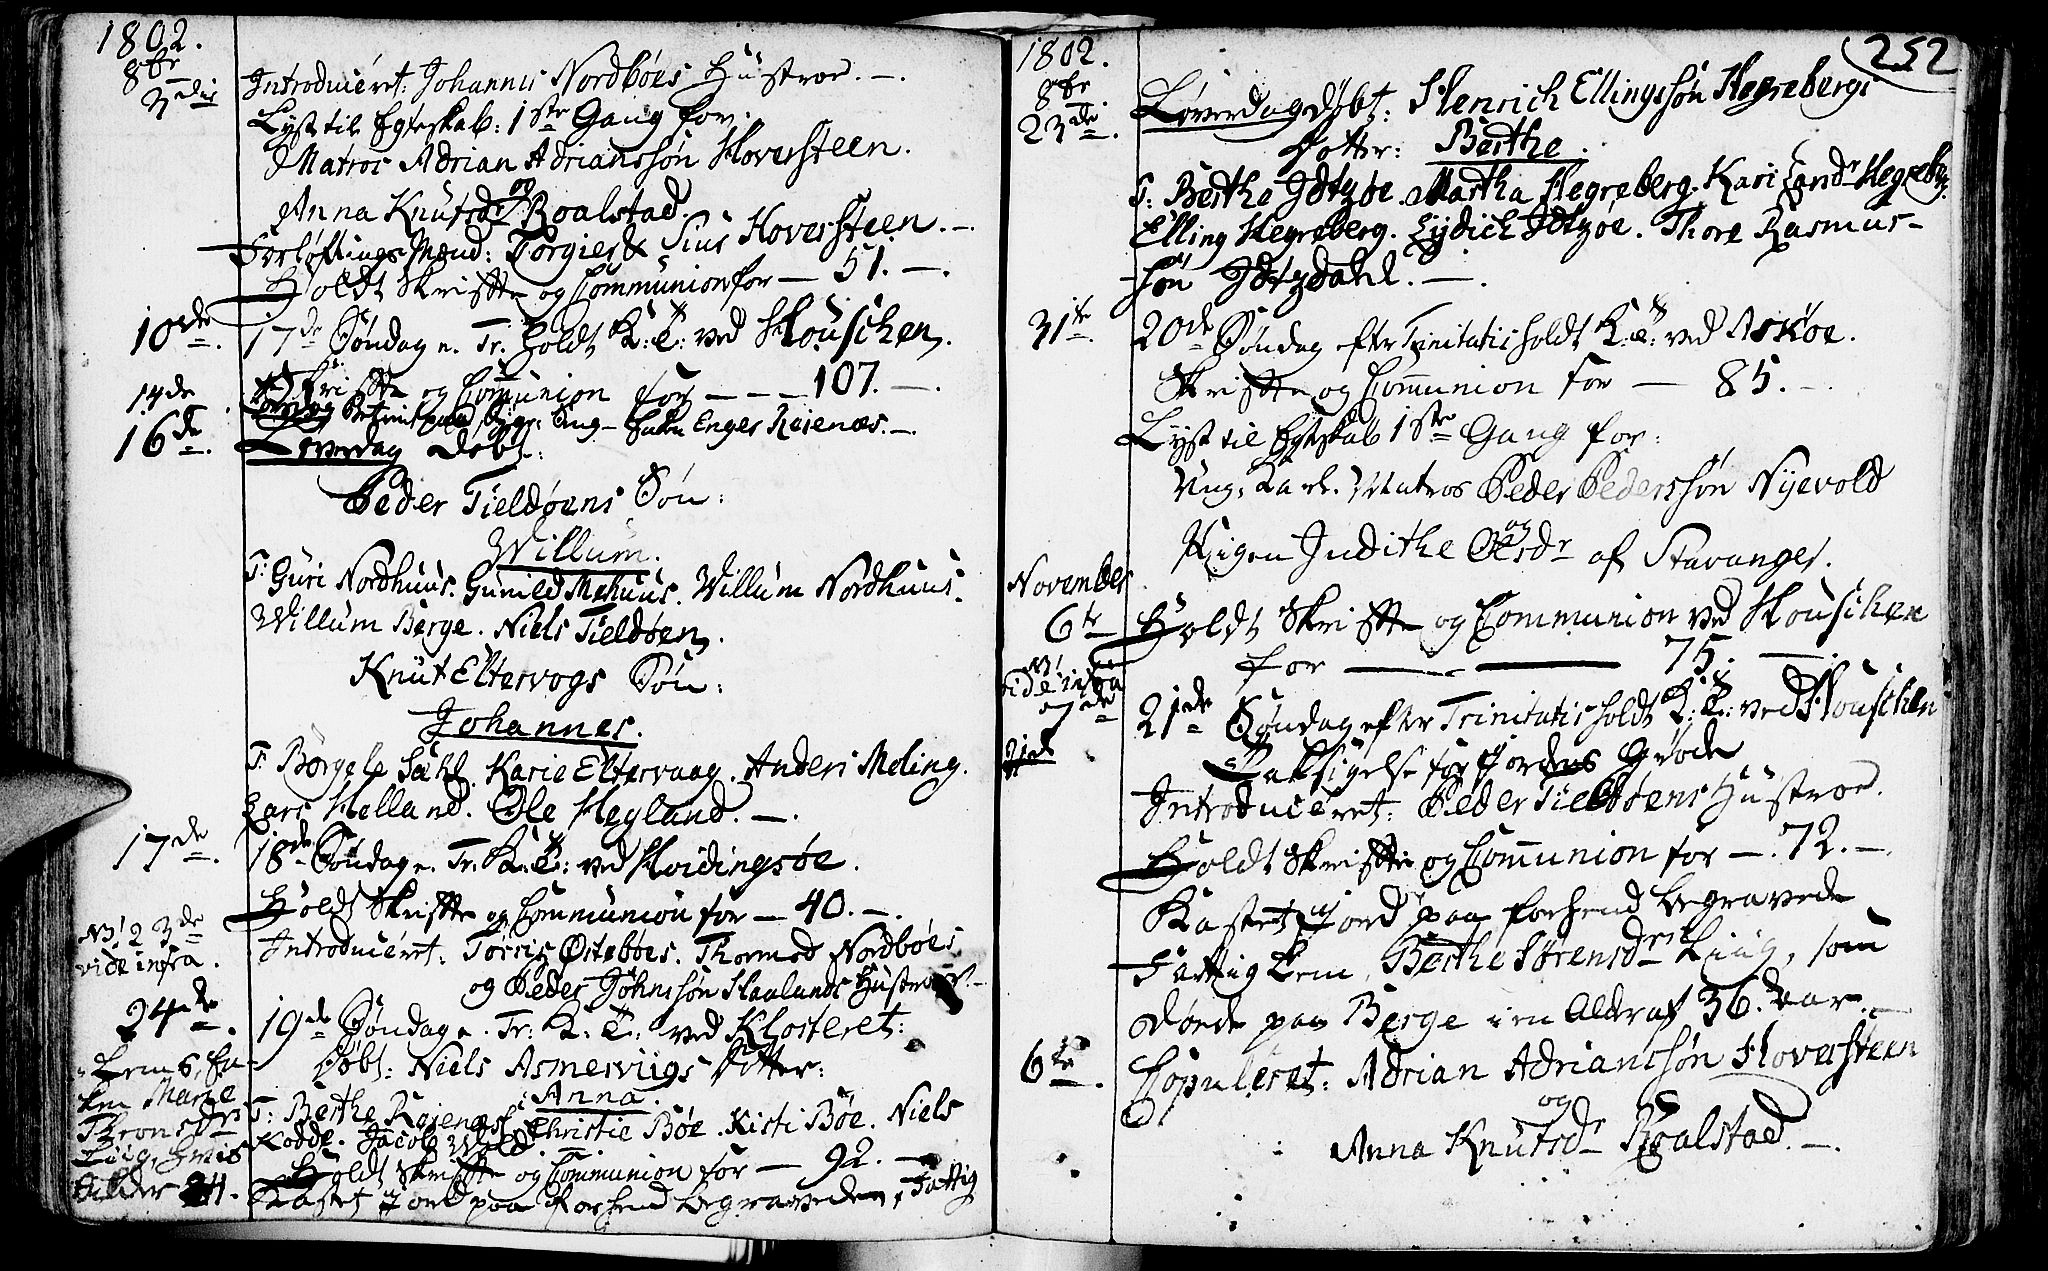 1802.
8br
3die
Introduceret: Johannes Nordbøes Hustroe. —.
Lyst til Egteskab: 1ste Gang for:
Matros Adrian Adriansøn Hoversteen.
og
Anna Knutsdr Roalstad.
Forløftings Mænd: Torgier & Sius Hoversteen. —.
Holdt Skrifte og Communion for — 51. —.
10de. 17de Søndag e. Tr. Holdt K: T: ved Houschen.
Skrifte og Communion for — — — 107. —.
14de
16de. Løverdag døbt:
Peder Tieldøens Søn:
Willum.
T: Guri Nordhuus. Gunild Mehuus. Willum Nordhuus.
Willum Berge. Niels Tieldøen.
Knut Eltervogs Søn:
Johannes.
T: Børgele Sähl. Karie Eltervaag. Anders Meling.
Lars Helland. Ole Hegland. —.
17de. 18de Søndag e. Tr. K: T: ved Hvidingsøe.
Holdt Skrifte og Communion for — 40. —.
NB! 23de
vide infra.
Introduceret: Torris Østebøes. Thormod Nordbøes
og Peder Johnssøn Haalands Hustroer. —
24de. 19de Søndag e. Tr: K: T: ved Klosteret:
Døbt: Niels Asmerviigs Dotter:
Anna.
T: Berthe Reienes. Christie Bøe. Kisti Bøe. Niels
Kodde. Jacob
Holdt Skrifte og Communion for — 92. —
Kastet Jord paa forhend begravede, Fattig
Lem
Marie
Thronsdr
Liig,
Alder

252
1802.
8br
23de. Løverdag døbt: Henrich Ellingssøn Hegrebergs
Dotter: Berthe.
T: Berthe Idtzøe. Martha Hegreberg. Kari Larsdr Hegreberg.
Elling Hegreberg. Lydich Idtzøe. Thore Rasmus-
søn Idtzdahl. —.
31te. 20de Søndag efter Trinitatis holdt K: T: ved Askøe.
Skrifte og Communion for — 85. —.
Lyst til Egteskab 1ste Gang for:
Ung Karl. Matros Peder Pederssøn Nyevold
og
Pigen Judithe Olsdr af Stavanger.
November
6te Holdt Skrifte og Communion ved Houschen
for — — 75. —.
NB!
vide infra
7de 21de Søndag efter Trinitatis holdt K: T: ved Houschen
Taksigelse for Jordens Grøde
Introduceret: Peder Tieldøens Hustroe.
Holdt Skrifte og Communion for —. 72. —.
Kastet Jord paa forhend begravede
Fattig Lem, Berthe Sørensdr Liig, som
døde paa Berge i en Alder af 36. Aar. —
6te. Copuleret: Adrian Adrianssøn Hoversteen
og
Anna Knutsdr Roalstad. —.